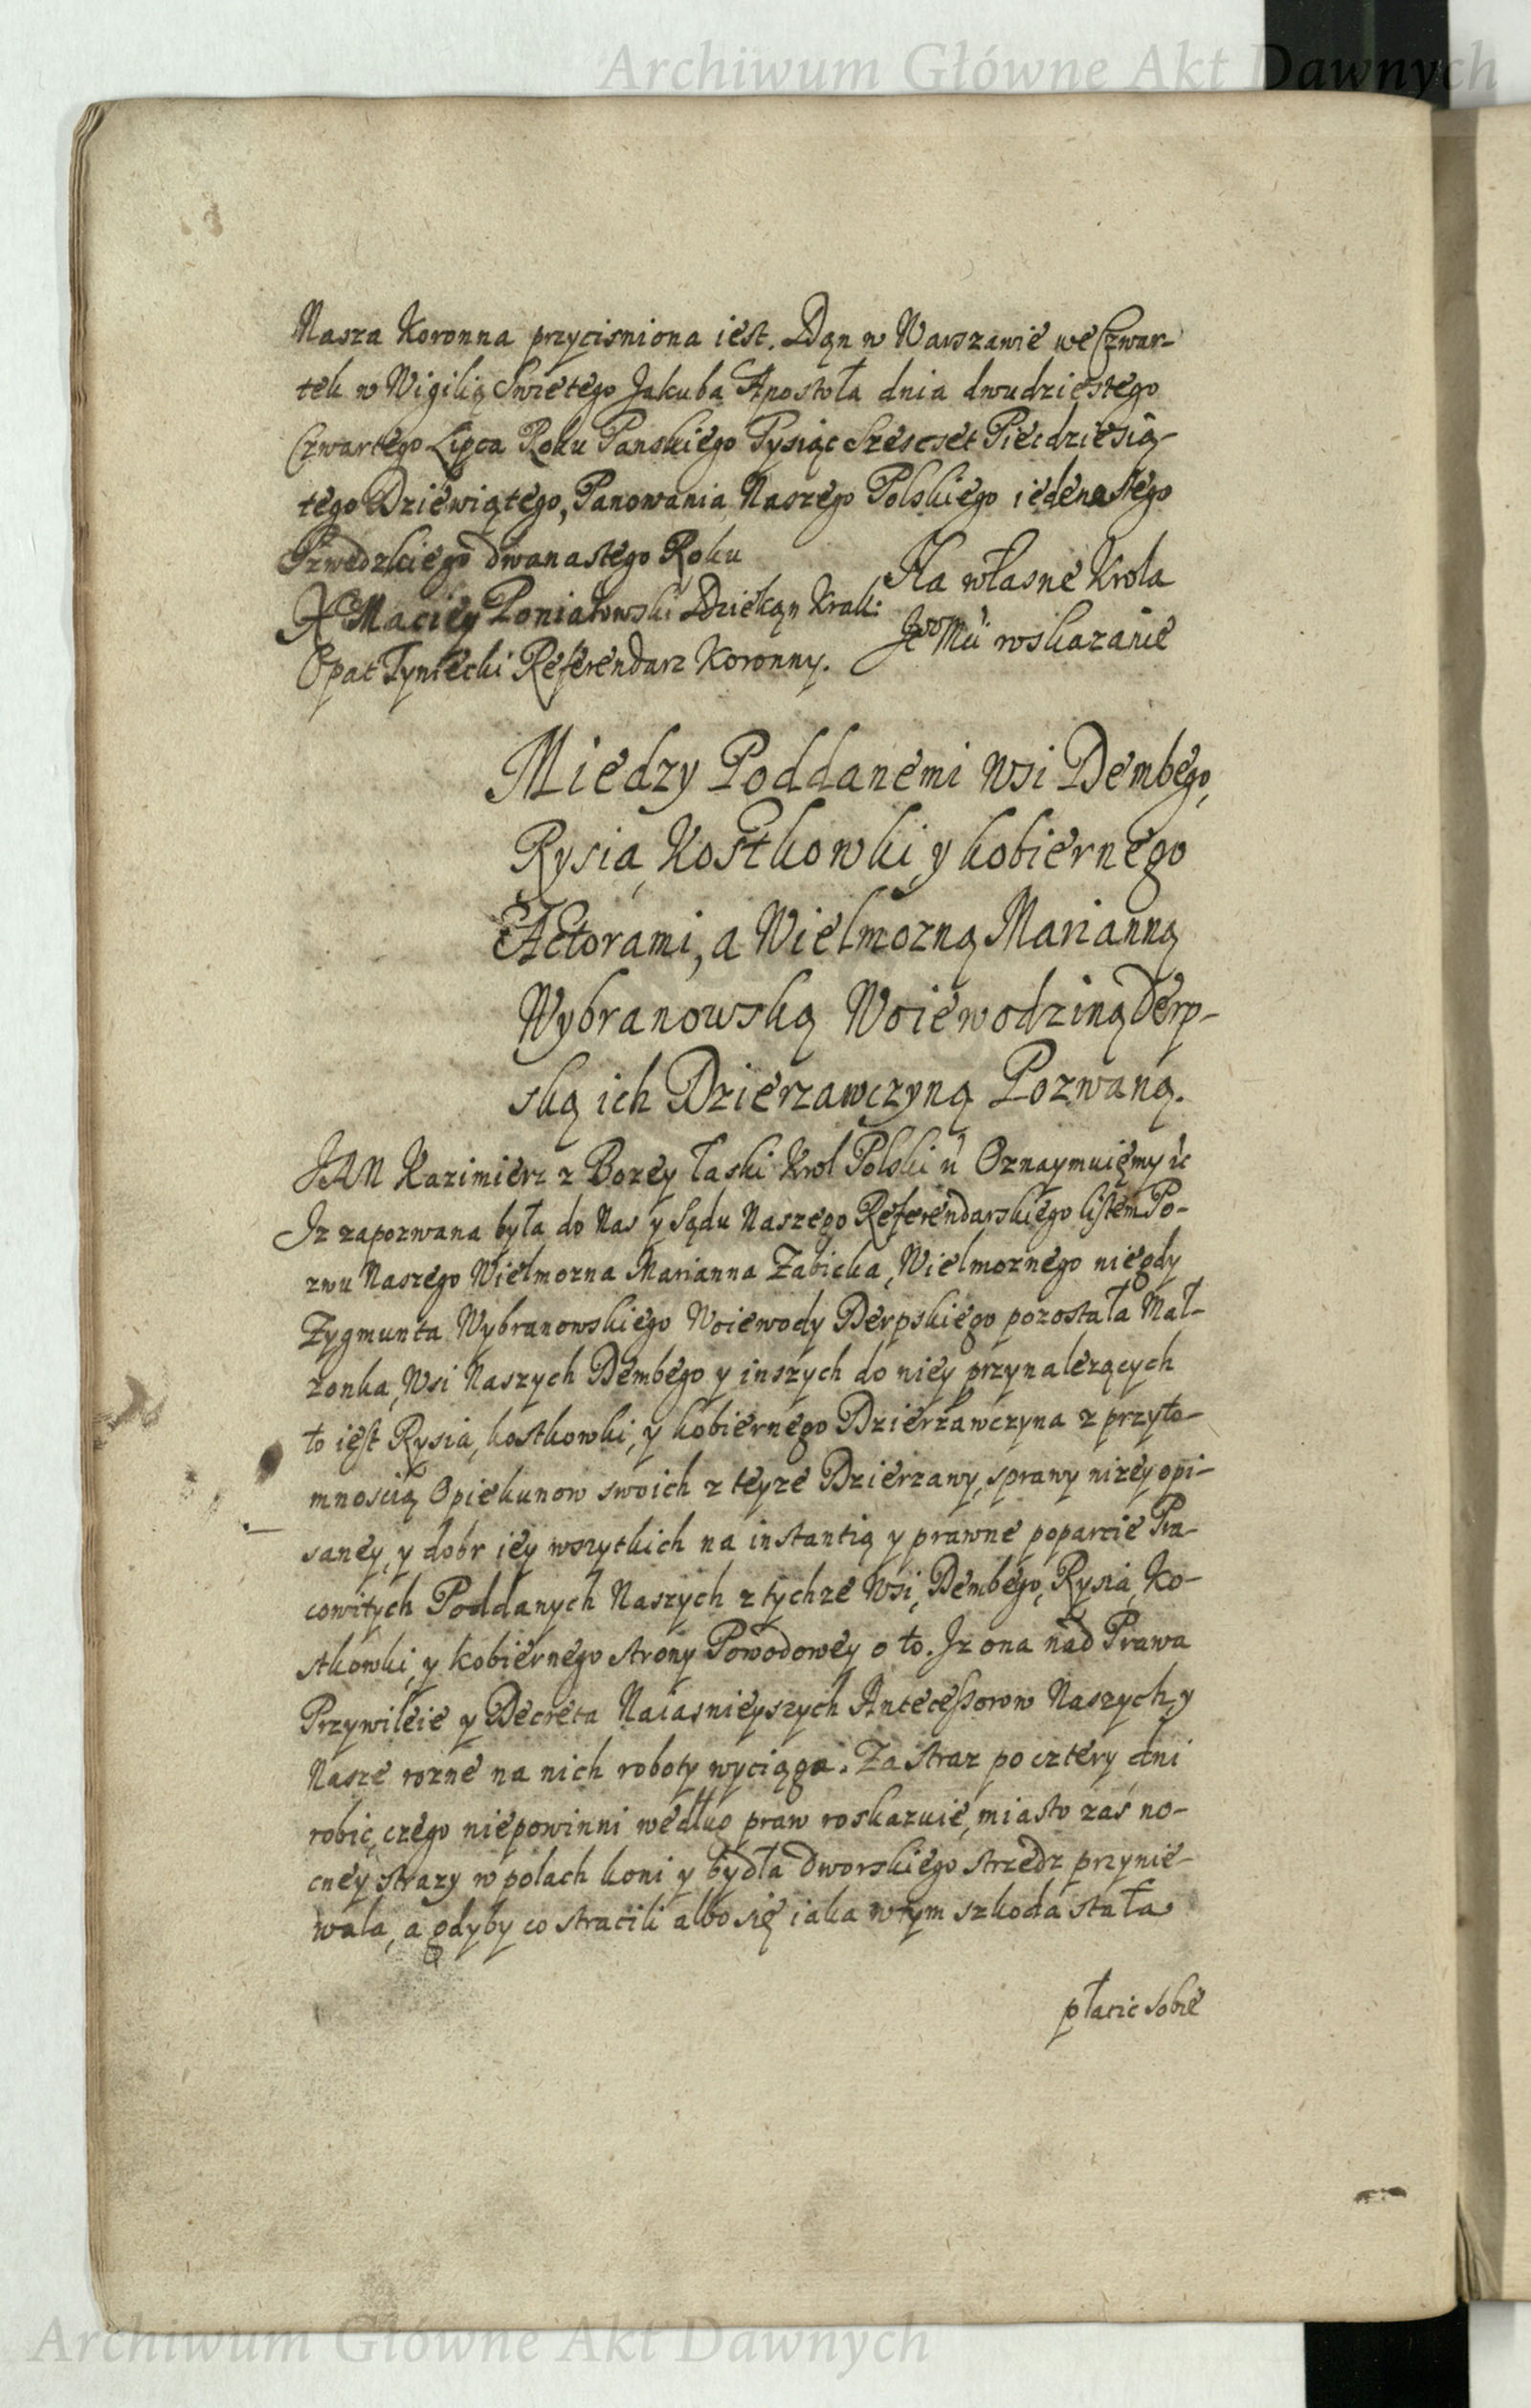 Archiwum Główne Akt Dawnych
Nasza Koronna przycisniona iest. Dąn w Warszawie we Czwar-
tek w Wigilią Swietego Jakuba Apostoła dnia dwudziestego
Czwartego Lipca Roku Panskiego Tysiąc Szescset Piecdziesią-
tego Dziewiątego, Panowania Naszego Polskiego iedenastego
Szwedzkiego dwanastego Roku
X Maciey Poniatowski Dziekąn Krak:
Opat Tyniecki Referendarz Koronny.
Na własne Krola
Jeo Mci wskazanie
Miedzy Poddanemi Wsi Dembego,
Rysia, Kostkowki, y kobiernego
Actorami, a Wielmozną Marianną
Wybranowską Woiewodziną Derp-
ską ich Dzierzawczyną Pozwaną.
JAN Kazimierz z Bozey łaski Krol Polski &c Oznaymuięmy &c
Iz zapozwana była do Nas y Sądu Naszego Referendarskiego listem Po-
zwu Naszego Wielmozna Marianna Zabicka, Wielmoznego niegdy
Zygmunta Wybranowskiego Woiewody Derpskiego pozostała Mał-
zonka, Wsi Naszych Dembego y inszych do niey przynalezących
to iest Rysia, kostkowki, y kobiernego Dzierzawczyna z przyto-
mnoscią Opiekunow swoich z teyze Dzierzawy, sprawy nizey opi-
saney, y dobr iey wszytkich na instantią y prawne poparcie Pra-
cowitych Poddanych Naszych z tychze Wsi, Dembego, Rysia, Ko-
stkowki, y kobiernego strony Powodowey o to. Iz ona nad Prawa
Przywileie y Decreta Naiasnieyszych Antecessorow Naszych, y
Nasze rozne na nich roboty wyciąga. Za straz po cztery dni
robic, czego niepowinni według praw roskazuie, miasto zas no-
cney strazy w polach koni y bydła dworskiego strzedz przynie-
wala, a gdyby co stracili albo się iaka w tym szkoda stała
płacic sobie
Archiwum Główne Akt Dawnych